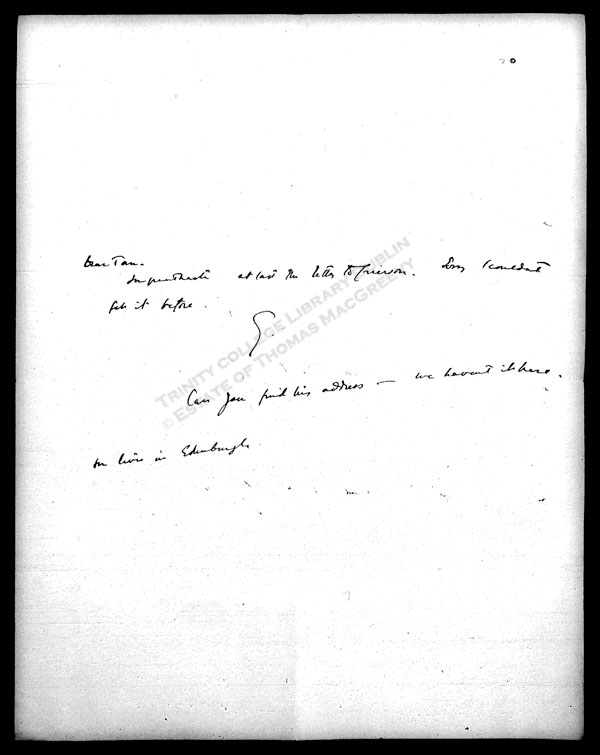 20
Dear Tom.
at last the letter to Grierson. Sorry I couldn't
get it before.
G.
Can you find his address — we haven't it here.
He lives in Edinburgh
TRINITY COLLEGE LIBRARY DUBLIN
© ESTATE OF THOMAS MACGREEVY